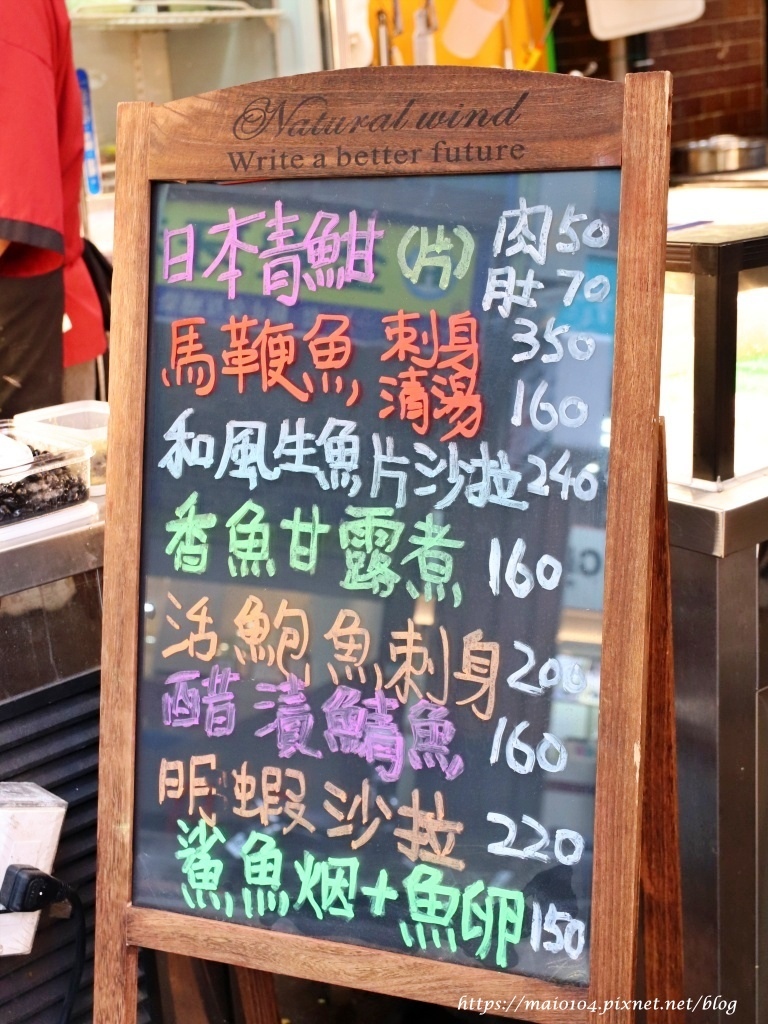 Natural wind
Write a better future
日本青魽(片) 肉50
肚70
馬鞭魚 刺身 350
清湯 160
和風生魚片沙拉240
香魚甘露煮 160
活鮑魚刺身 200
醋漬鯖魚 160
明蝦沙拉 220
鯊魚烟+魚卵150
https://maio104.pixnet.net/blog